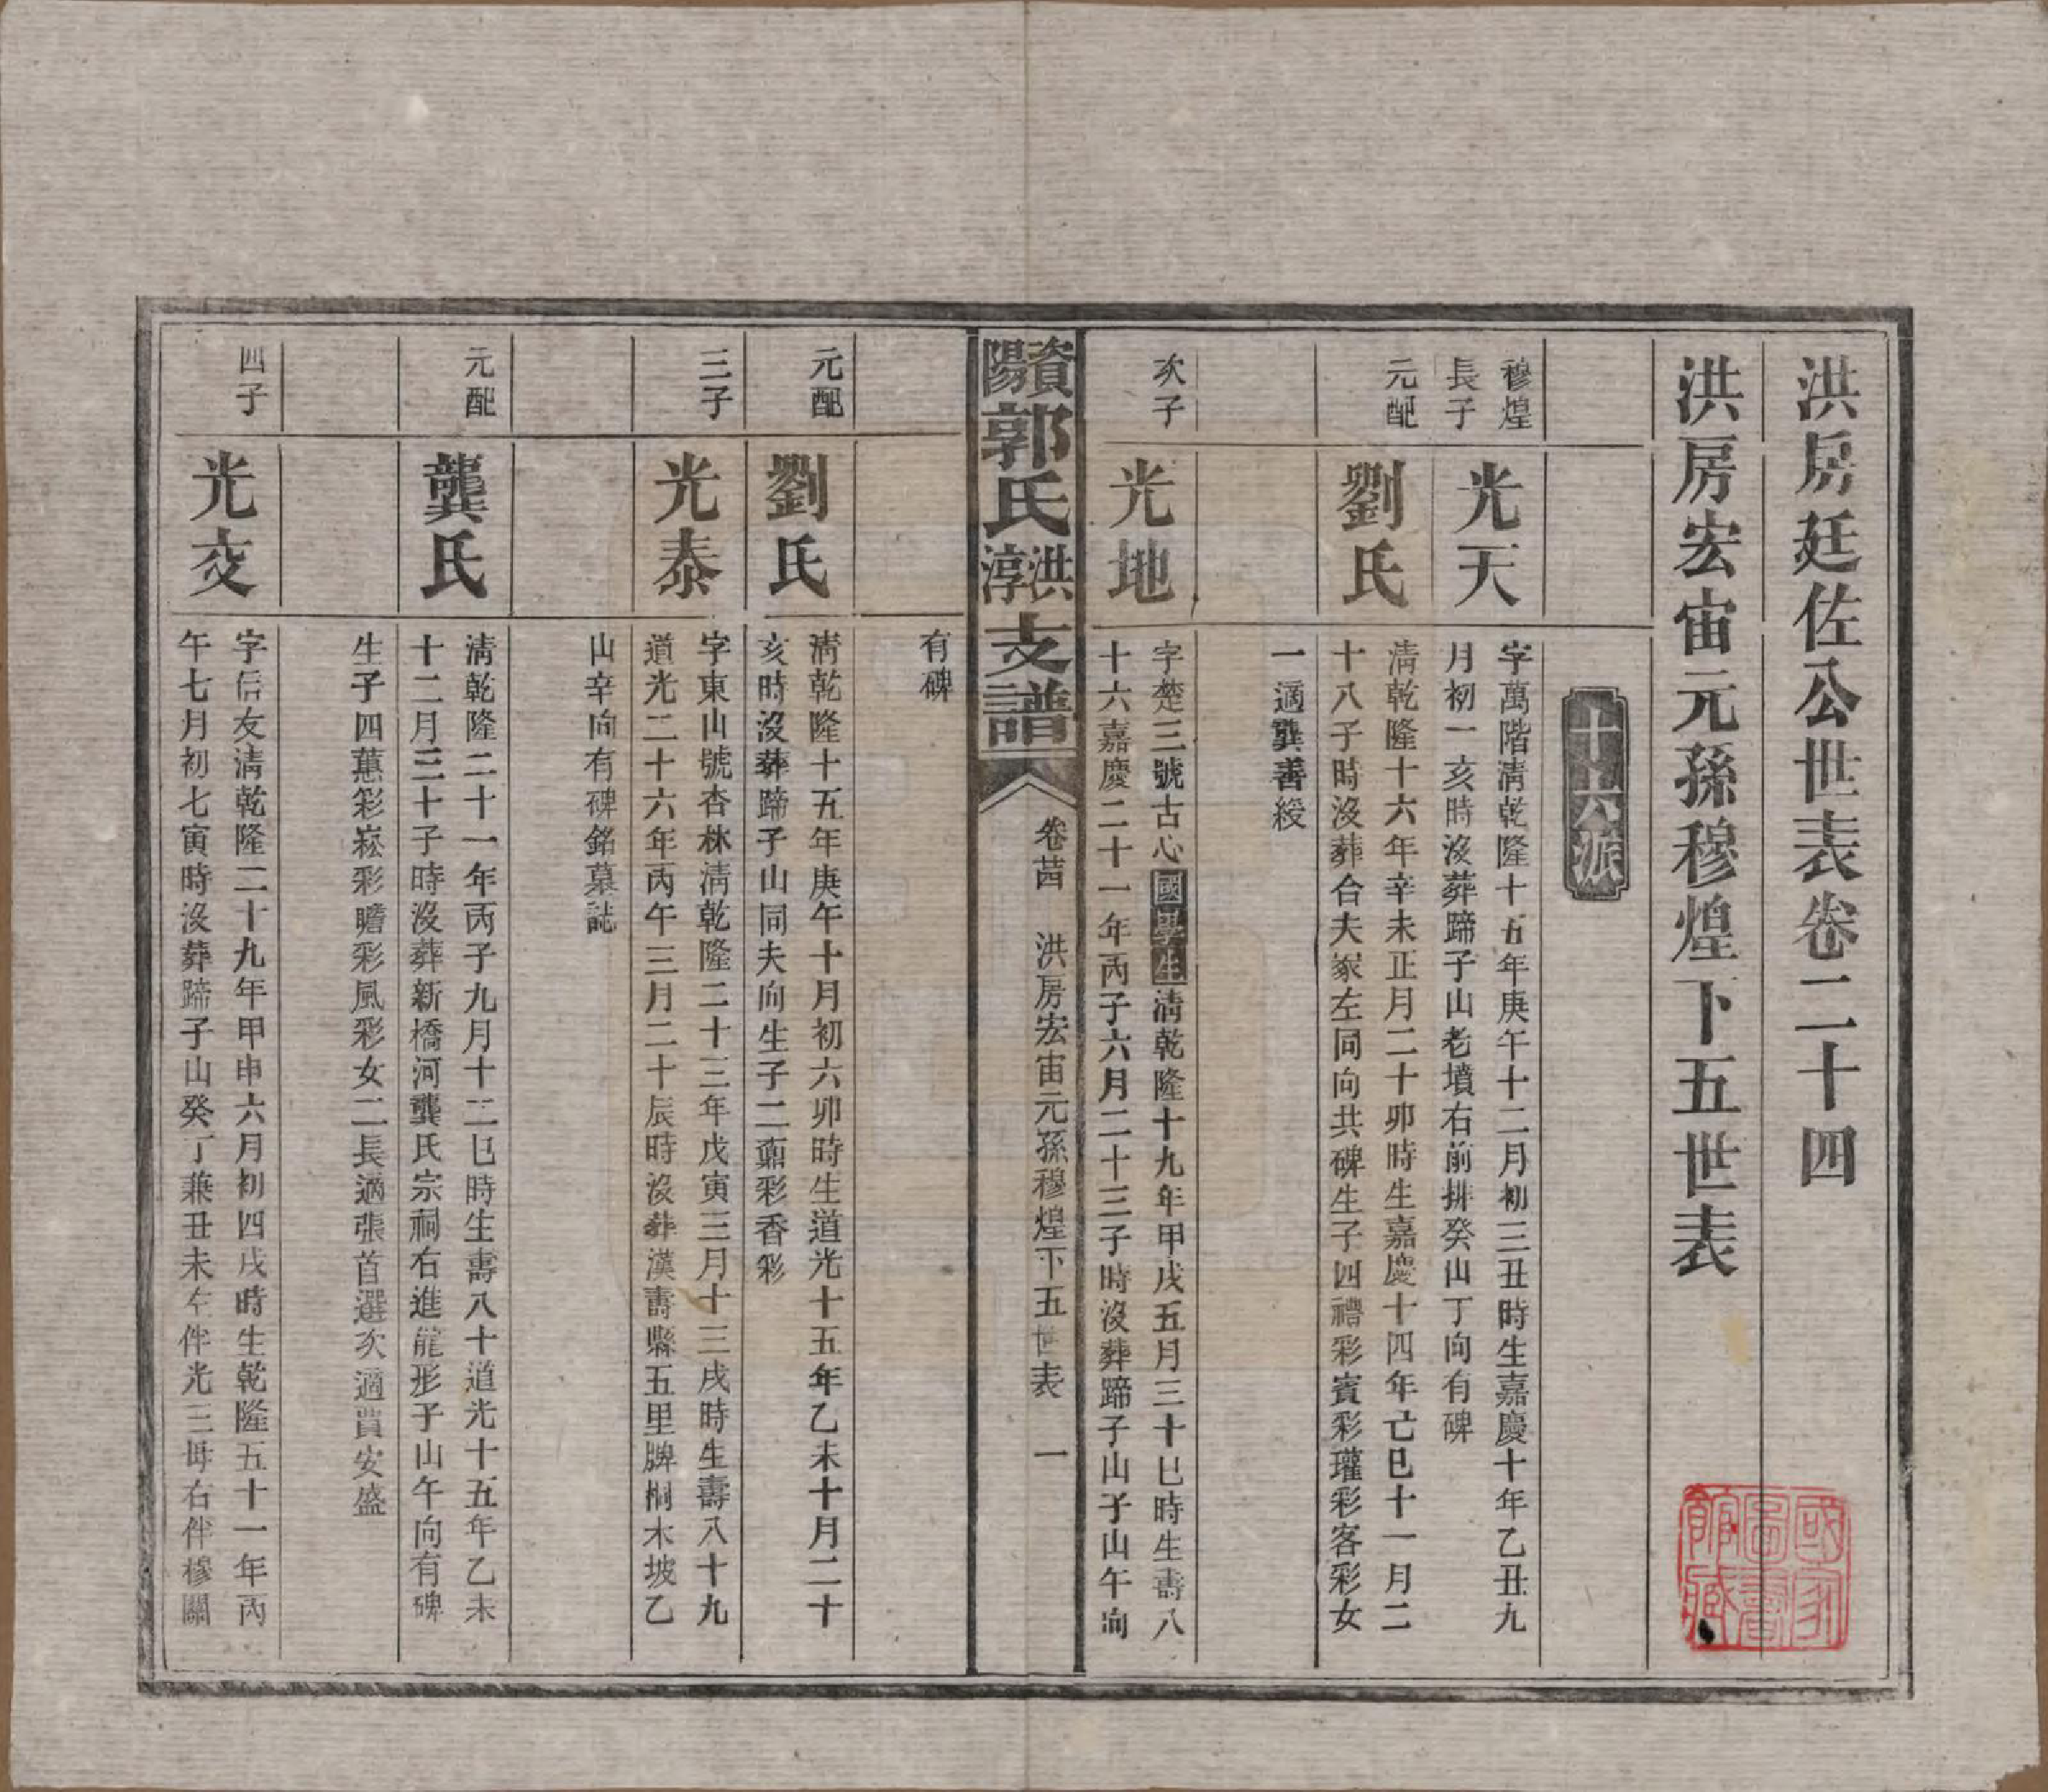 洪房廷佐公世表卷二十四
洪房宏宙元孫穆煌下五世表
十六派
穆煌
長子
光天
字萬階淸乾隆十五年庚午十二月初三丑時生嘉慶十年乙丑九
月初一亥時沒葬蹄子山老墳右前排癸山丁向有碑
元配
劉氏
淸乾隆十六年辛未正月二十卯時生嘉慶十四年己巳十一月二
十八子時沒葬合夫冢左同向共碑生子四禮彩賓彩瓘彩客彩女
一適龔善綬
次子
光地
字楚三號古心國學生淸乾隆十九年甲戌五月三十巳時生壽八
十六嘉慶二十一年丙子六月二十三子時沒葬蹄子山子山午向
有碑
資陽郭氏洪淳支譜
卷茜 洪房宏宙元孫穆煌下五世表 一
元配
劉氏
淸乾隆十五年庚午十月初六卯時生道光十五年乙未十月二十
亥時沒葬蹄子山同夫向生子二鼐彩香彩
三子
光泰
字東山號杏林淸乾隆二十三年戊寅三月十三戌時生壽八十九
道光二十六年丙午三月二十辰時沒葬漢壽縣五里牌桐木坡乙
山辛向有碑銘墓誌
元配
龔氏
淸乾隆二十一年丙子九月十二巳時生壽八十道光十五年乙未
十二月三十子時沒葬新橋河龔氏宗祠右進龍形子山午向有碑
生子四蕙彩崧彩瞻彩風彩女二長適張首選次適賁安盛
四子
光交
字信友淸乾隆二十九年甲申六月初四戌時生乾隆五十一年丙
午七月初七寅時沒葬蹄子山癸丁兼丑未左伴光三毋右伴穆關
國家圖書館藏